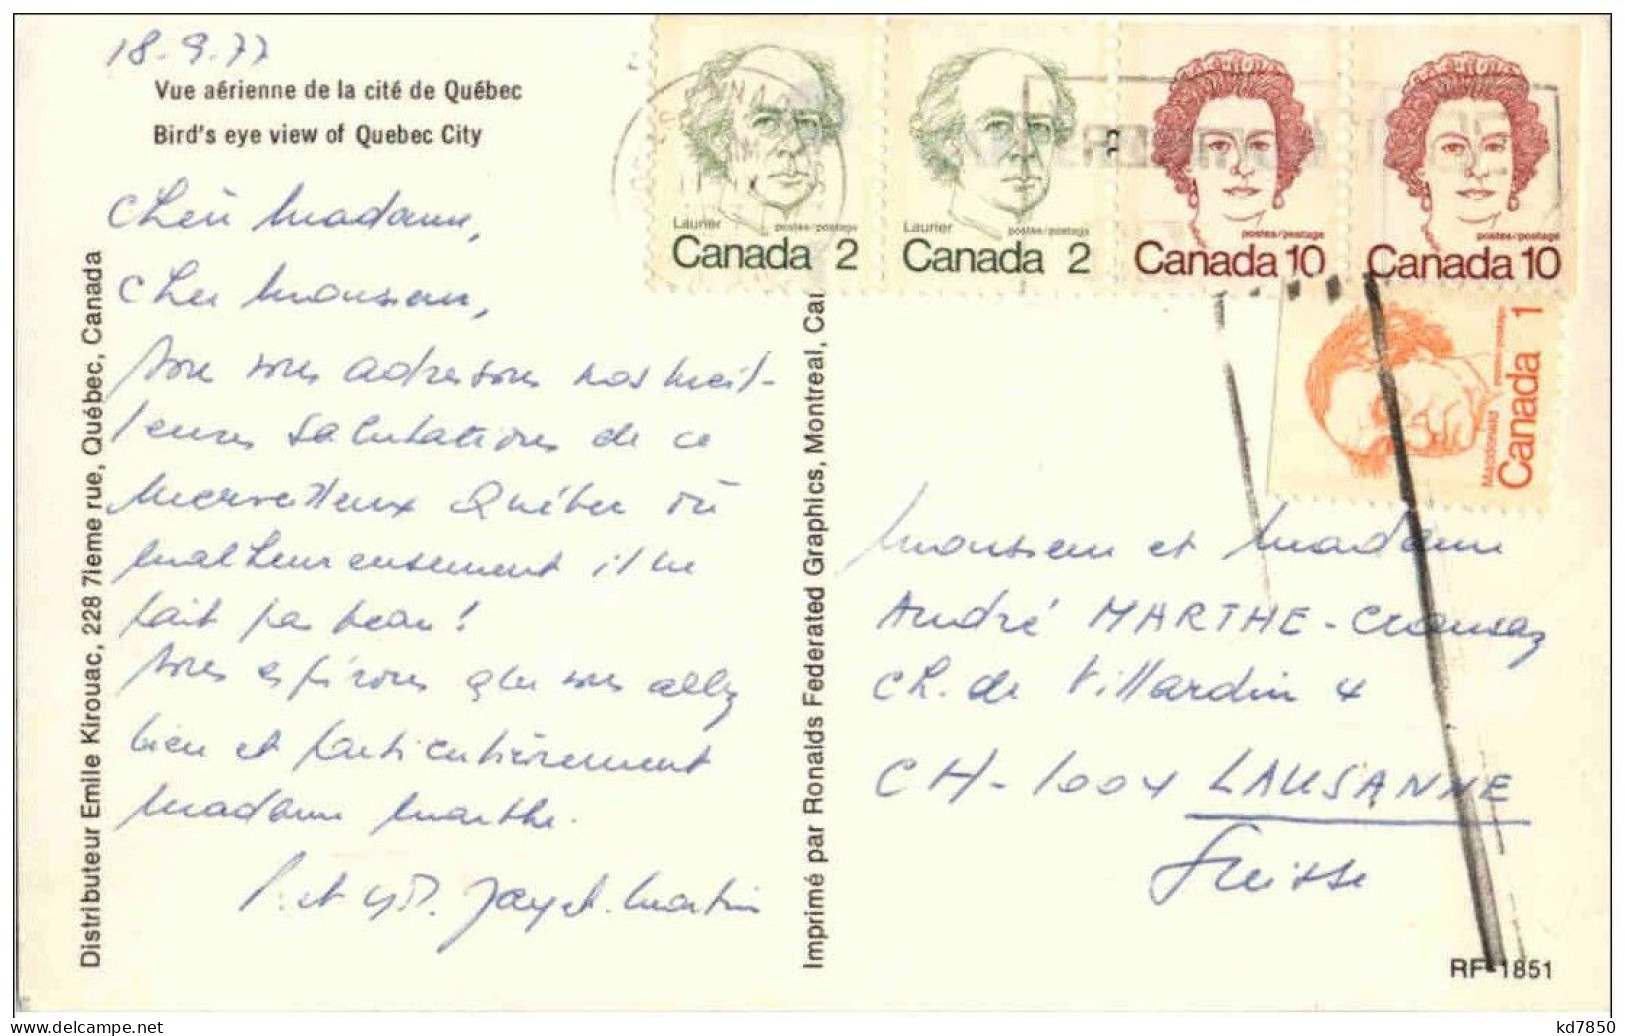 18-9.77
Vue aérienne de la cité de Québec
Bird's eye view of Quebec City
Chère Madame,
Cher Monsieur,
Nous vous adressons nos meil-
leures salutations de ce
merveilleux Québec où
malheureusement il ne
fait pas beau!
Nous espérons que vous allez
bien et particulièrement
Madame Marthe.
Jayet-Martin
Distributeur Emile Kirouac, 228 7ieme rue, Québec, Canada
Imprimé par Ronalds Federated Graphics, Montreal, Can
Laurier postes/postage
Canada 2
Laurier postes/postage
Canada 2
postes/postage
Canada 10
postes/postage
Canada 10
Macdonald postes/postage
Canada 1
Monsieur et Madame
André MARTHE-Crausaz
Ch. de Villardin 4
CH-1004 LAUSANNE
Suisse
RF-1851
kd7850